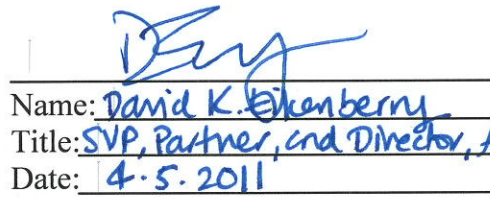 Name: David K. Eikenberry
Title: SVP, Partner, and Director,
Date: 4.5.2011